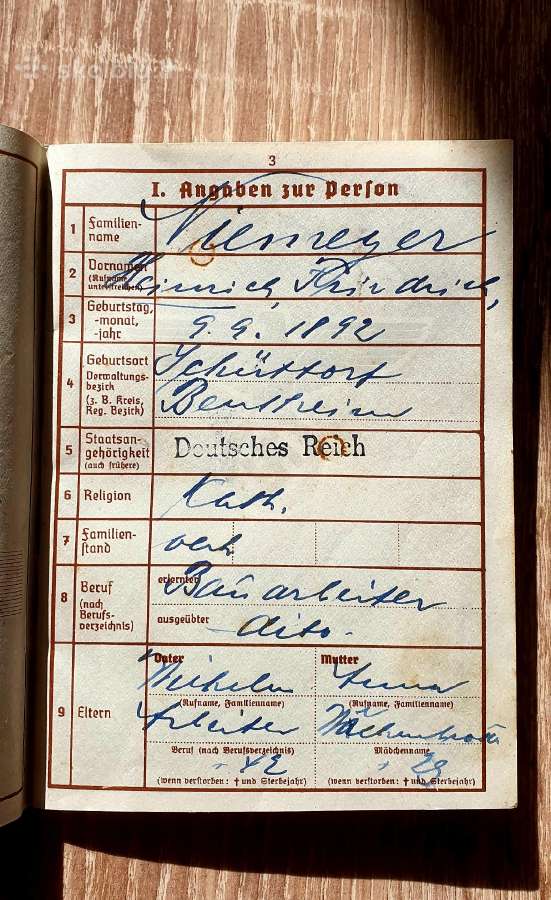 3
I. Angaben zur Person
1 Familien-
name
Niemeyer
2 Vornamen
(Rufname
unterstreichen)
Heinrich, Friedrich,
3 Geburtstag,
-monat,
-jahr
9. 9. 1892
4 Geburtsort
Verwaltungs-
bezirk
(z. B. Kreis,
Reg. Bezirk)
Schüttorf
Bentheim
5 Staatsan-
gehörigkeit
(auch frühere)
Deutsches Reich
6 Religion
Kath.
7 Familien-
stand
verh
8 Beruf
(nach
Berufs-
verzeichnis)
erlernter
Bauarbeiter
ausgeübter
dito.
9 Eltern
Vater Mutter
Wilhelm Anna
(Rufname, Familienname) (Rufname, Familienname)
Arbeiter
Beruf (nach Berufsverzeichnis) Mädchenname
(wenn verstorben: † und Sterbejahr) (wenn verstorben: † und Sterbejahr)